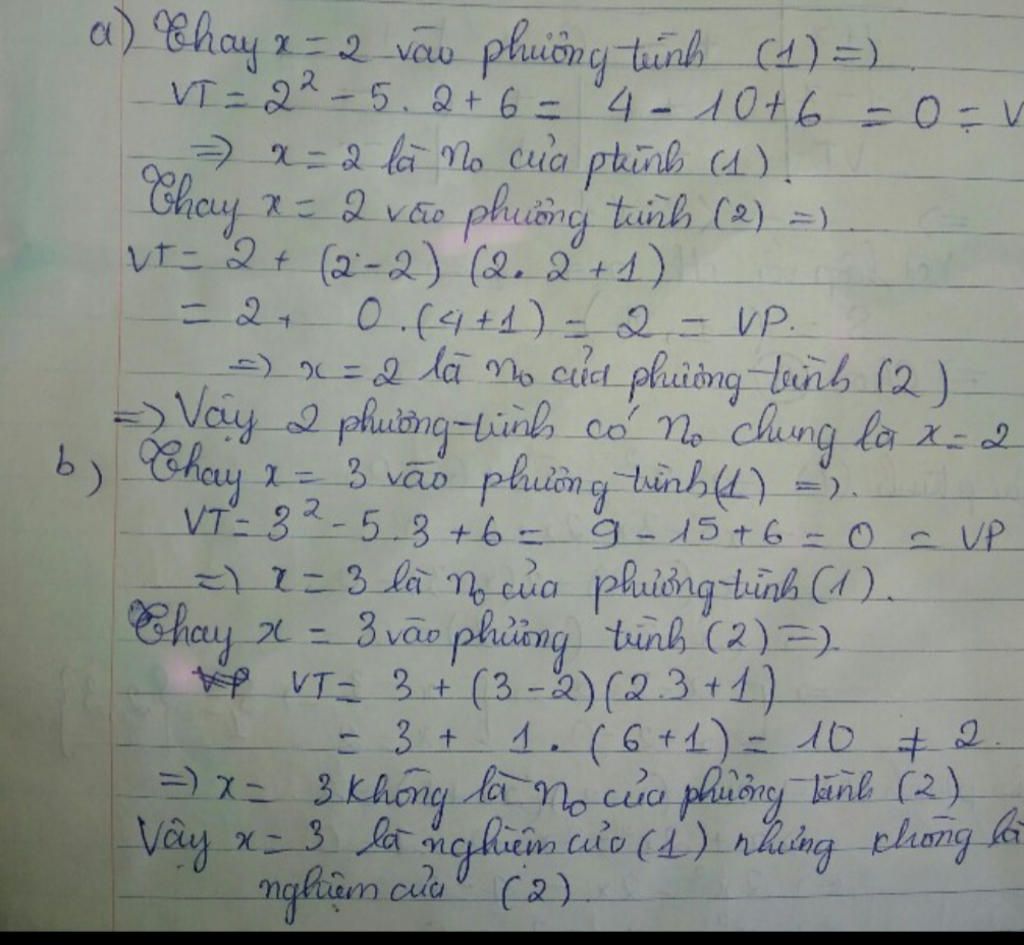 a) Thay x = 2 vào phương trình (1) =)
VT = 2² - 5. 2 + 6 = 4 - 10 + 6 = 0 = V
=> x = 2 là no của ptrình (1).
Thay x = 2 vào phương trình (2) =)
VT = 2 + (2 - 2) (2. 2 + 1)
= 2 + 0 .(4 + 1) = 2 = VP.
=) x = 2 là no của phương trình (2)
=) Vậy 2 phương trình có no chung là x = 2
b) Thay x = 3 vào phương trình (1) =).
VT = 3² - 5.3 + 6 = 9 - 15 + 6 = 0 = VP
=) x = 3 là no của phương trình (1).
Thay x = 3 vào phương trình (2) =).
VP VT = 3 + (3 - 2) (2.3 + 1)
= 3 + 1. (6 + 1) = 10 ≠ 2.
=) x = 3 không là no của phương trình (2)
Vậy x = 3 là nghiệm của (1) nhưng không là
nghiệm của (2).